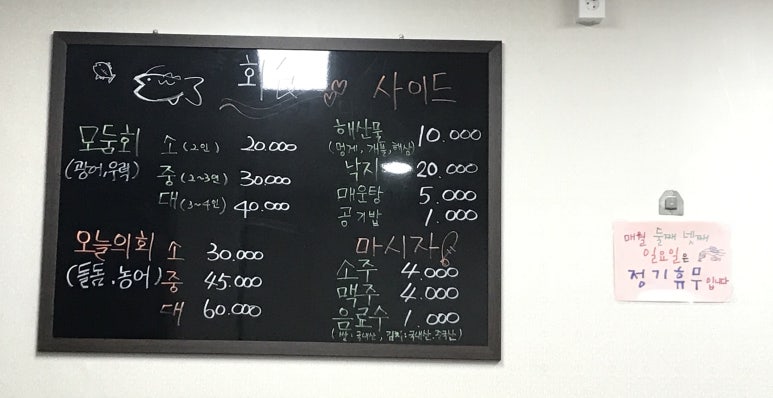 회
모둠회 소 (2인) 20.000
(광어,우럭) 중 (2~3인) 30.000
대 (3~4인) 40.000
오늘의회 소 30.000
(돌돔.농어) 중 45.000
대 60.000
사이드
해산물 10.000
(멍게, 개불, 해삼)
낙지 20.000
매운탕 5.000
공기밥 1.000
마시자
소주 4.000
맥주 4.000
음료수 1.000
(쌀:국내산, 김치:국내산.중국산)
매월 둘째 넷째
일요일은
정기휴무입니다